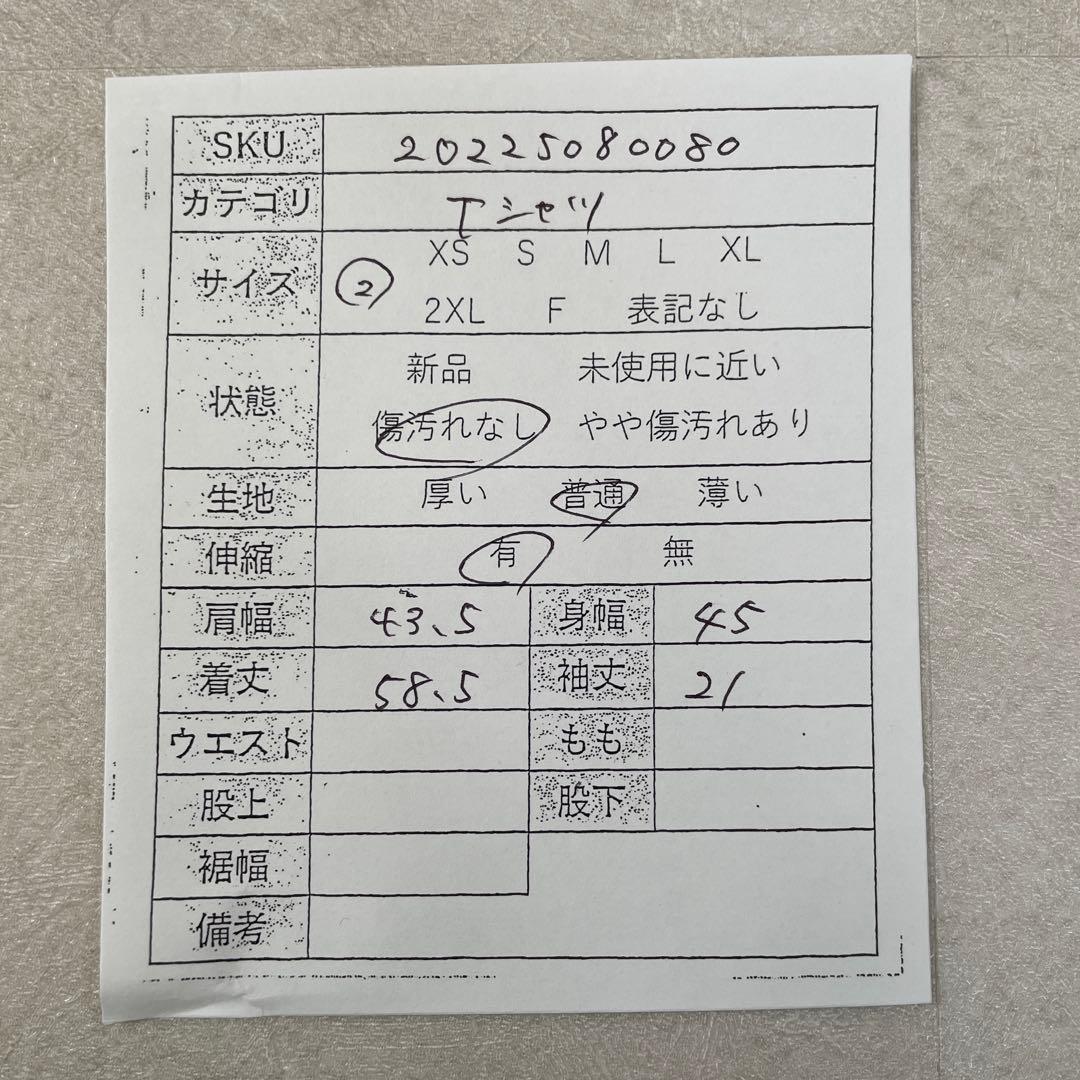 SKU 20225080080
カテゴリ Tシャツ
XS S M L XL
サイズ ②
2XL F 表記なし
新品 未使用に近い
状態
傷汚れなし やや傷汚れあり
生地 厚い 普通 薄い
伸縮 有 無
肩幅 43.5 身幅 45
着丈 58.5 袖丈 21
ウエスト もも
股上 股下
裾幅
備考